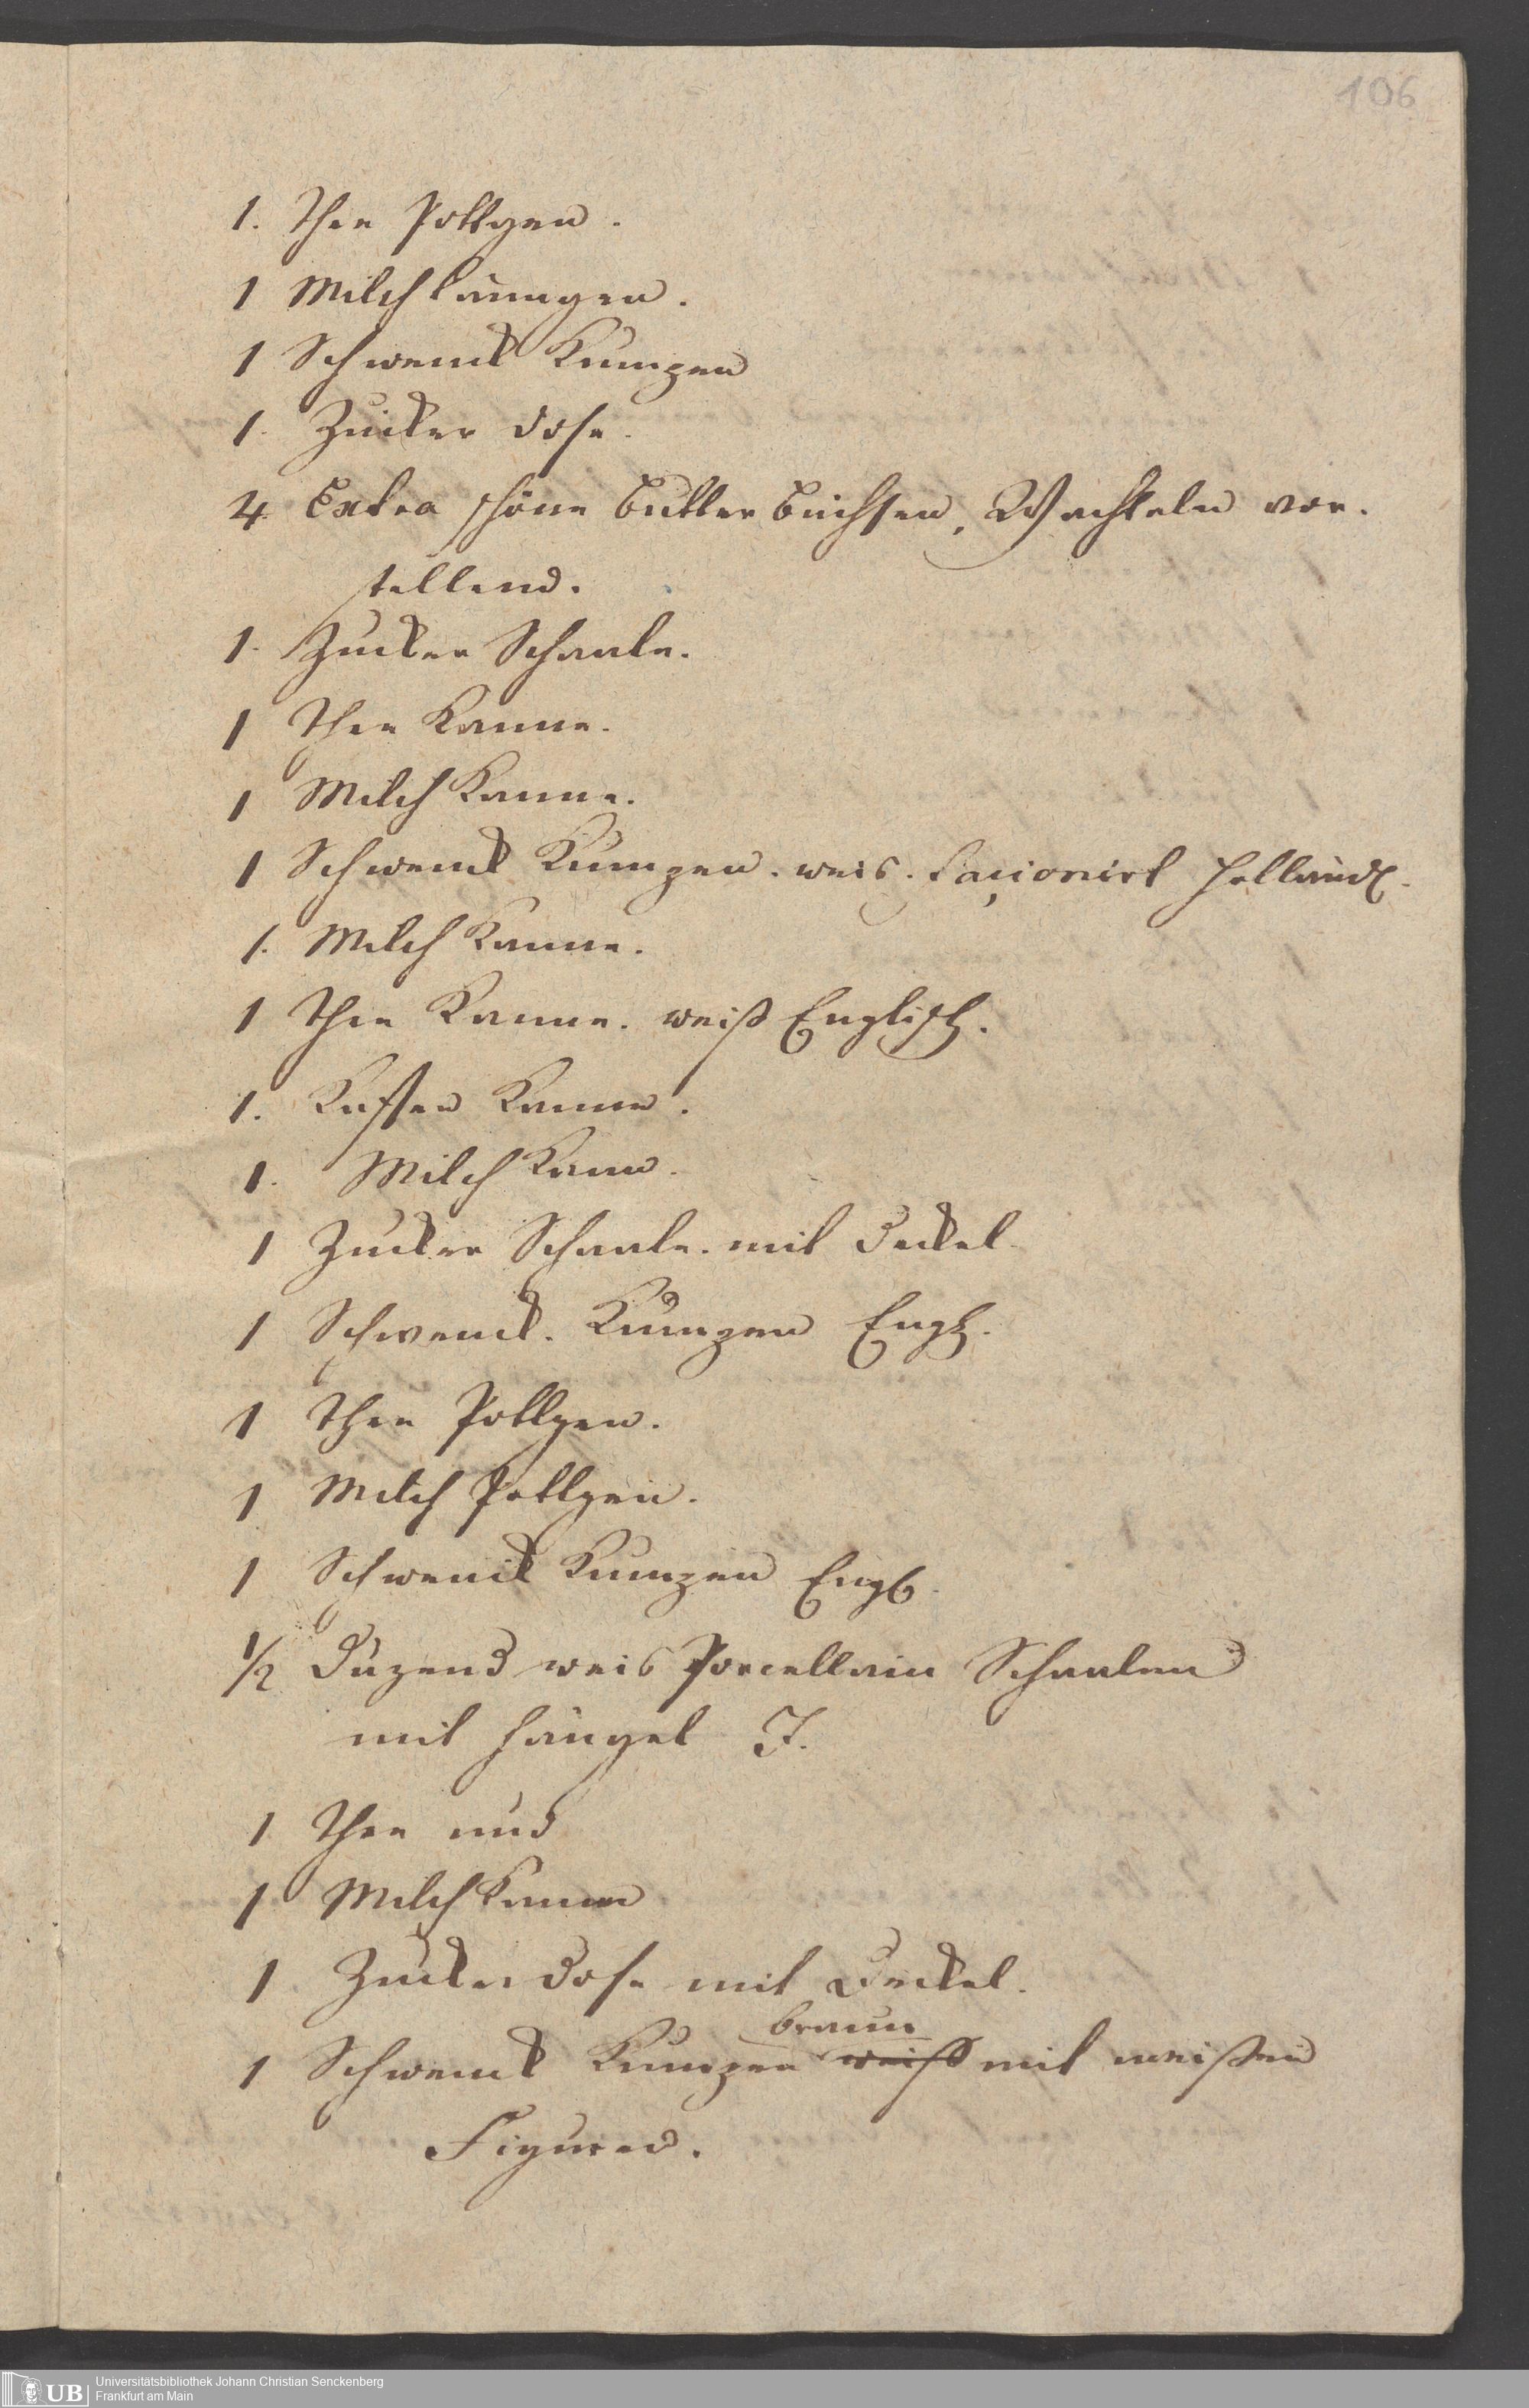 106
1. Thee Pottgen.
1 Milchkänngen.
1 Schwenck Kumpen
1. Zucker Dose.
4 Extra schöne Butter Büchsen, Wachteln vor-
stellend.
1. Zucker Schaale.
1 Thee Kanne.
1 Milch Kanne.
1 Schwenck Kumpen. weis. façionirt Holländ.
1. Milch Kanne.
1 Thee Kanne. weiß Englisch.
1. Kaffee Kanne.
1. Milch Kann.
1 Zucker Schaale. mit Deckel.
1 Schwenck. Kumpen Engl.
1 Thee Pottgen.
1 Milch Pottgen.
1 Schwenck Kumpen Engl.
1/2 Duzend weis Porcellain Schaalen
mit Hängel J.
1 Thee und
1 Milchkanne
1 Zucker Dose mit Deckel.
braun
1 Schwenck Kumpen weiß mit weißen
Figuren.
UB
Universitätsbibliothek Johann Christian Senckenberg
Frankfurt am Main